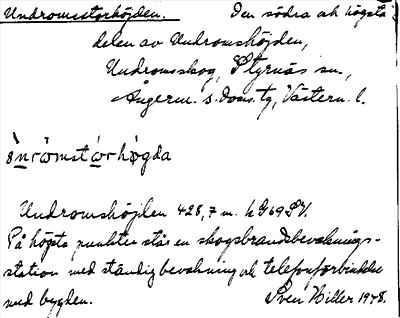 Undromsstorhöjden. Den södra och högsta
delen av Undromshöjden,
Undromsskog, Styrnäs sn.,
Ångerm. s. doms. tg, Västern. l.
ònrò̀mstò̀rhø̀gda
Undromshöjden 428,7 m. h G69 SV.
På högsta punkten står en skogsbrandsbevaknings-
station med ständig bevakning och telefonförbindelse
med bygden. Sven Biller 1948.